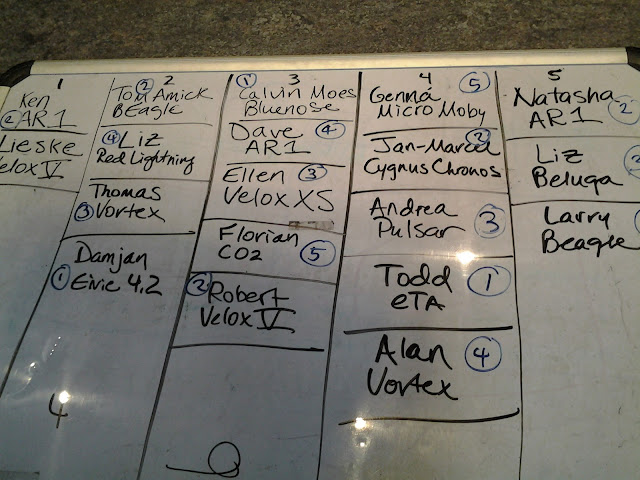 1
Ken
2 AR1
Lieske
Velox V
2
2
Tom Amick
BEagle
4 Liz
Red Lightning
Thomas
3 Vortex
Damjan
1 Eivie 4.2
4
1 3
Calvin Moes
Bluenose
Dave 4
AR1
Ellen 3
Velox XS
Florian
CO2 5
2 Robert
Velox V
4 5
Genma
Micro Moby
2
Jan-Marcel
Cygnus Chronos
Andrea
Pulsar 3
Todd 1
eTA
Alan 4
Vortex
5
Natasha 2
AR1
Liz
Beluga
Larry
Beagle